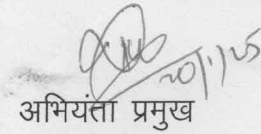 20/1/25
अभियंता प्रमुख